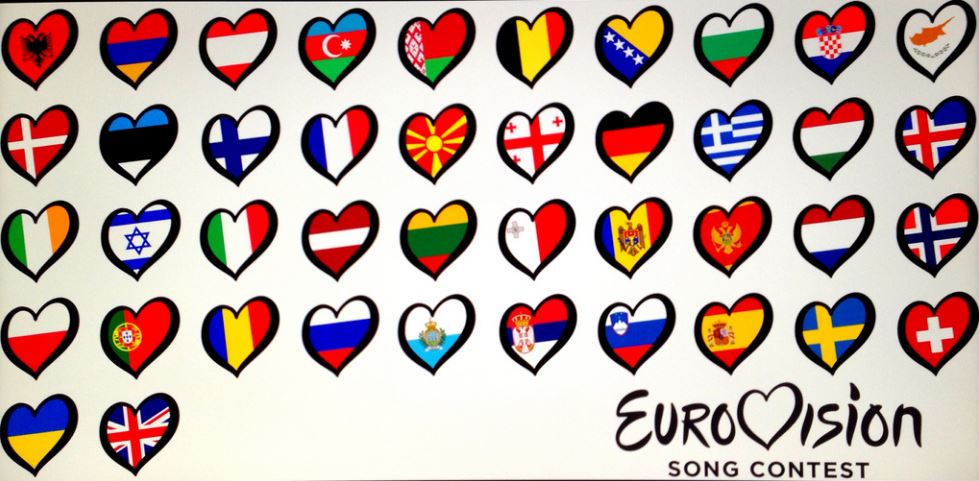 EUROVISION
SONG CONTEST